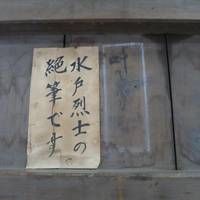 水戸烈士の
絶筆です